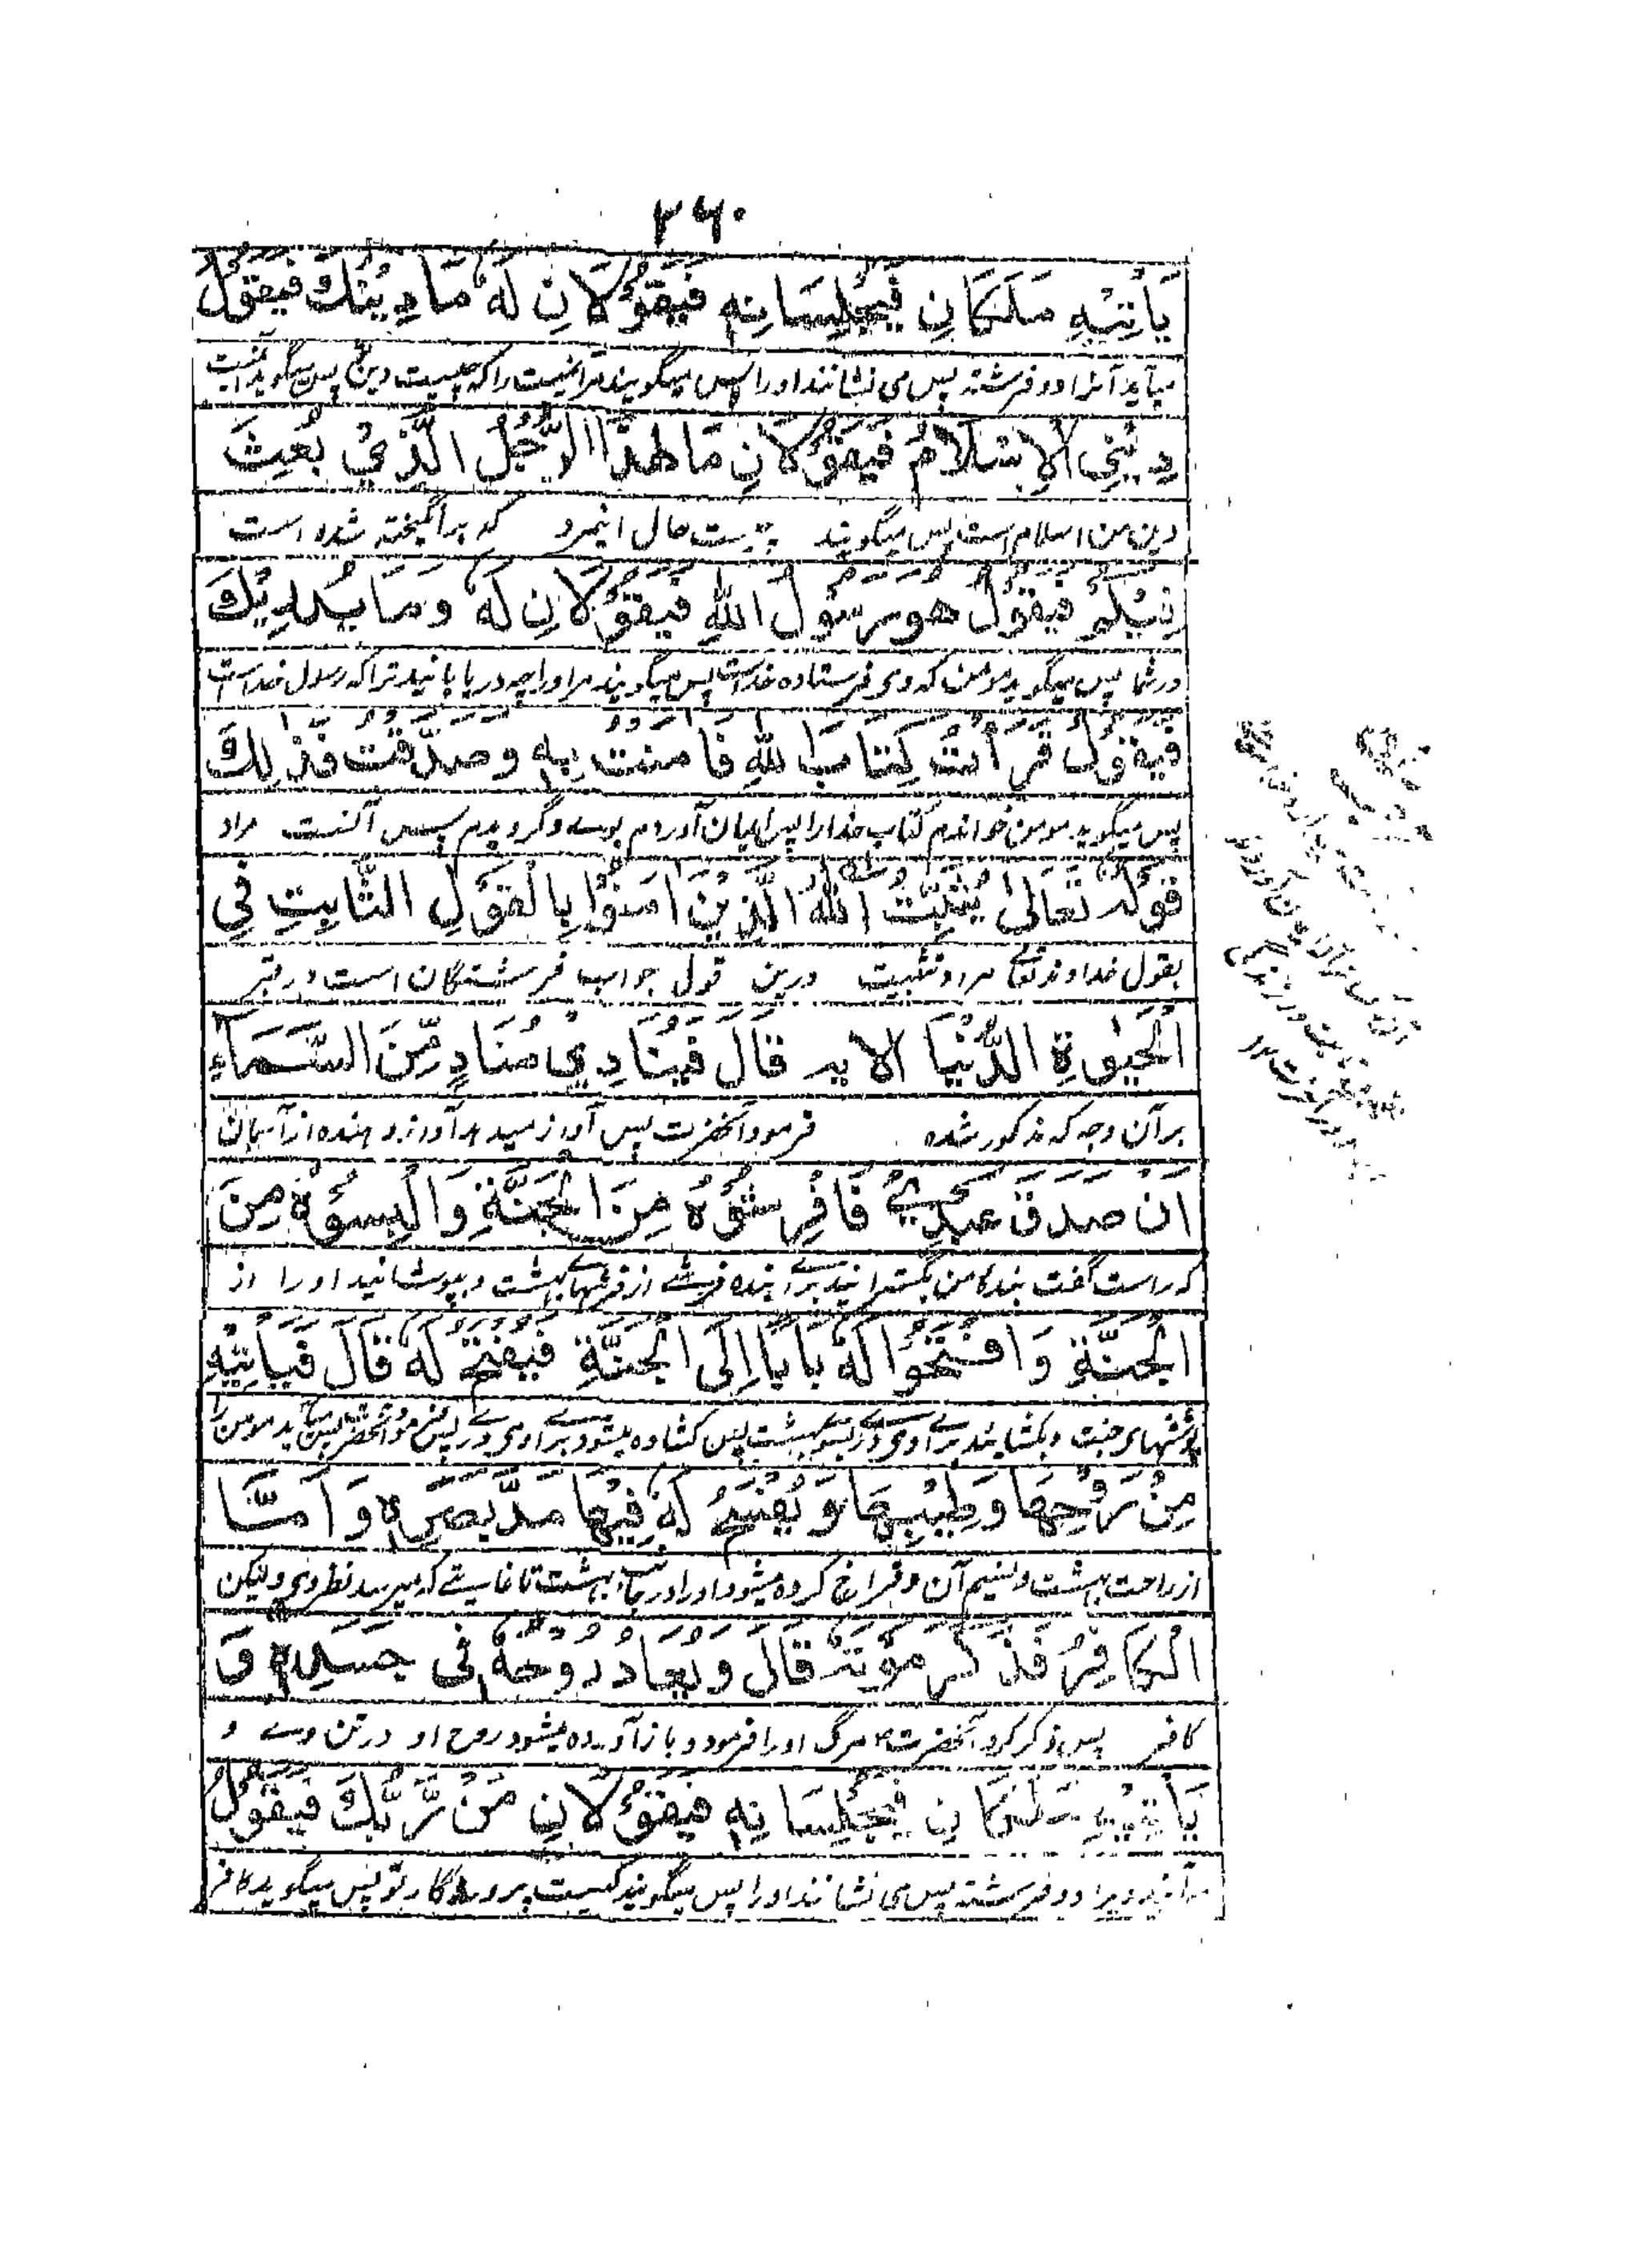 ۳۶۰
يَأْتِيْهِ مَلَكَانِ فَيُجْلِسَانِهٖ فَيَقُوْلَانِ لَهٗ مَا دِيْنُكَ فَيَقُوْلُ
می آید آنرا دو فرشته پس می نشانند اورا پس میگویند مرانمیت را که چیست دین پس میگوید
دِيْنِيَ الْاِسْلَامُ فَيَقُوْلَانِ مَا هٰذَا الرَّجُلُ الَّذِيْ بُعِثَ
دین من اسلام است پس میگویند چیست حال اینمرد که برانگیخته شده است
فِيْكُمْ فَيَقُوْلُ هُوَ رَسُوْلُ اللّٰهِ فَيَقُوْلَانِ لَهٗ وَمَا يُدْرِيْكَ
در شما پس میگوید مومن که وی فرستاده خداست پس میگویند مر اورا چه دریابانید ترا که رسول خداست
فَيَقُوْلُ قَرَأْتُ كِتَابَ اللّٰهِ فَاٰمَنْتُ بِهٖ وَصَدَّقْتُ فَذٰلِكَ
پس میگوید مومن خواندم کتاب خدا را پس ایمان آوردم بوے و گرویدم پس آنست مراد
قَوْلُهٗ تَعَالٰى يُثَبِّتُ اللّٰهُ الَّذِيْنَ اٰمَنُوْا بِالْقَوْلِ الثَّابِتِ فِي
بقول خداوند تعالے مراد تثبیت درین قول جواب فرشتگان است در قبر
الْحَيٰوةِ الدُّنْيَا الايه قَالَ فَيُنَادِيْ مُنَادٍ مِّنَ السَّمَاءِ
بر آن وجه که مذکور شده فرمود آنحضرت پس آواز میدهد آواز دهنده از آسمان
اَنْ صَدَقَ عَبْدِيْ فَافْرِشُوْهُ مِنَ الْجَنَّةِ وَالْبِسُوْهُ مِنَ
که راست گفت بنده من بگسترانید برای بنده فرشے از فرشهاے بهشت و بپوشانید اورا از
الْجَنَّةِ وَافْتَحُوْا لَهٗ بَابًا اِلَى الْجَنَّةِ فَيُفْتَحُ لَهٗ قَالَ فَيَأْتِيْهِ
پوششهای جنت و بکشایند براے وی درے بسوے بهشت پس کشاده میشود براے وی درے پس فرمود آنحضرت پس می آید مومن را
مِنْ رَوْحِهَا وَطِيْبِهَا وَيُفْسَحُ لَهٗ فِيْهَا مَدَّ بَصَرِهٖ وَاَمَّا
از راحت بهشت و نسیم آن و فراخ کرده میشود اورا در بهشت تا غایتے که میرسد نظر وی ولیکن
الْكَافِرُ فَذَكَرَ مَوْتَهٗ قَالَ وَيُعَادُ رُوْحُهٗ فِيْ جَسَدِهٖ وَ
کافر پس ذکر کرد آنحضرت مرگ اورا فرمود و باز آورده میشود روح او در تن وے و
يَأْتِيْهِ مَلَكَانِ فَيُجْلِسَانِهٖ فَيَقُوْلَانِ مَنْ رَّبُّكَ فَيَقُوْلُ
می آیند ویرا دو فرشته پس می نشانند اورا پس میگویند کیست پروردگار تو پس میگوید کافر